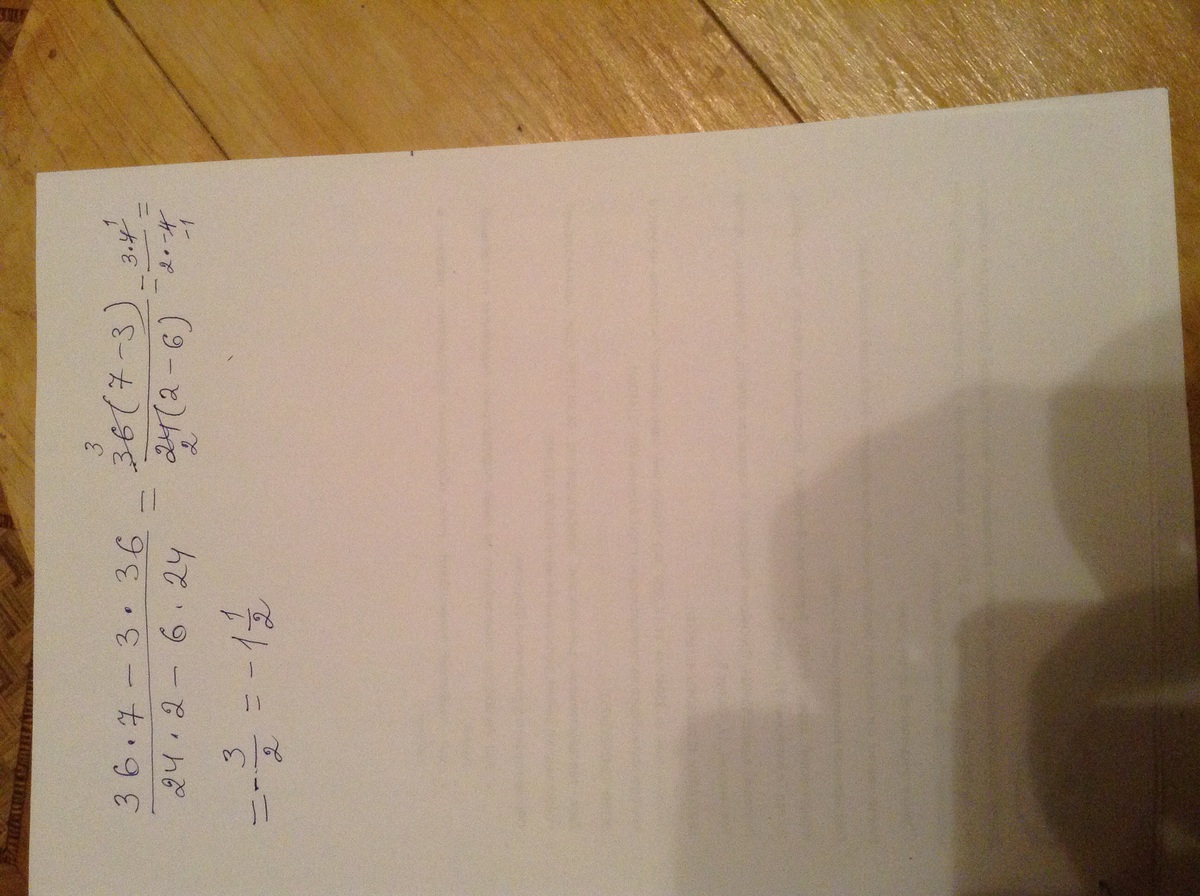 36·7−3·36 / 24·2−6·24 = 36(7−3) / 24(2−6) = 3·4 / 2·−4 =
3 2 1 −1
= −3/2 = −1 1/2